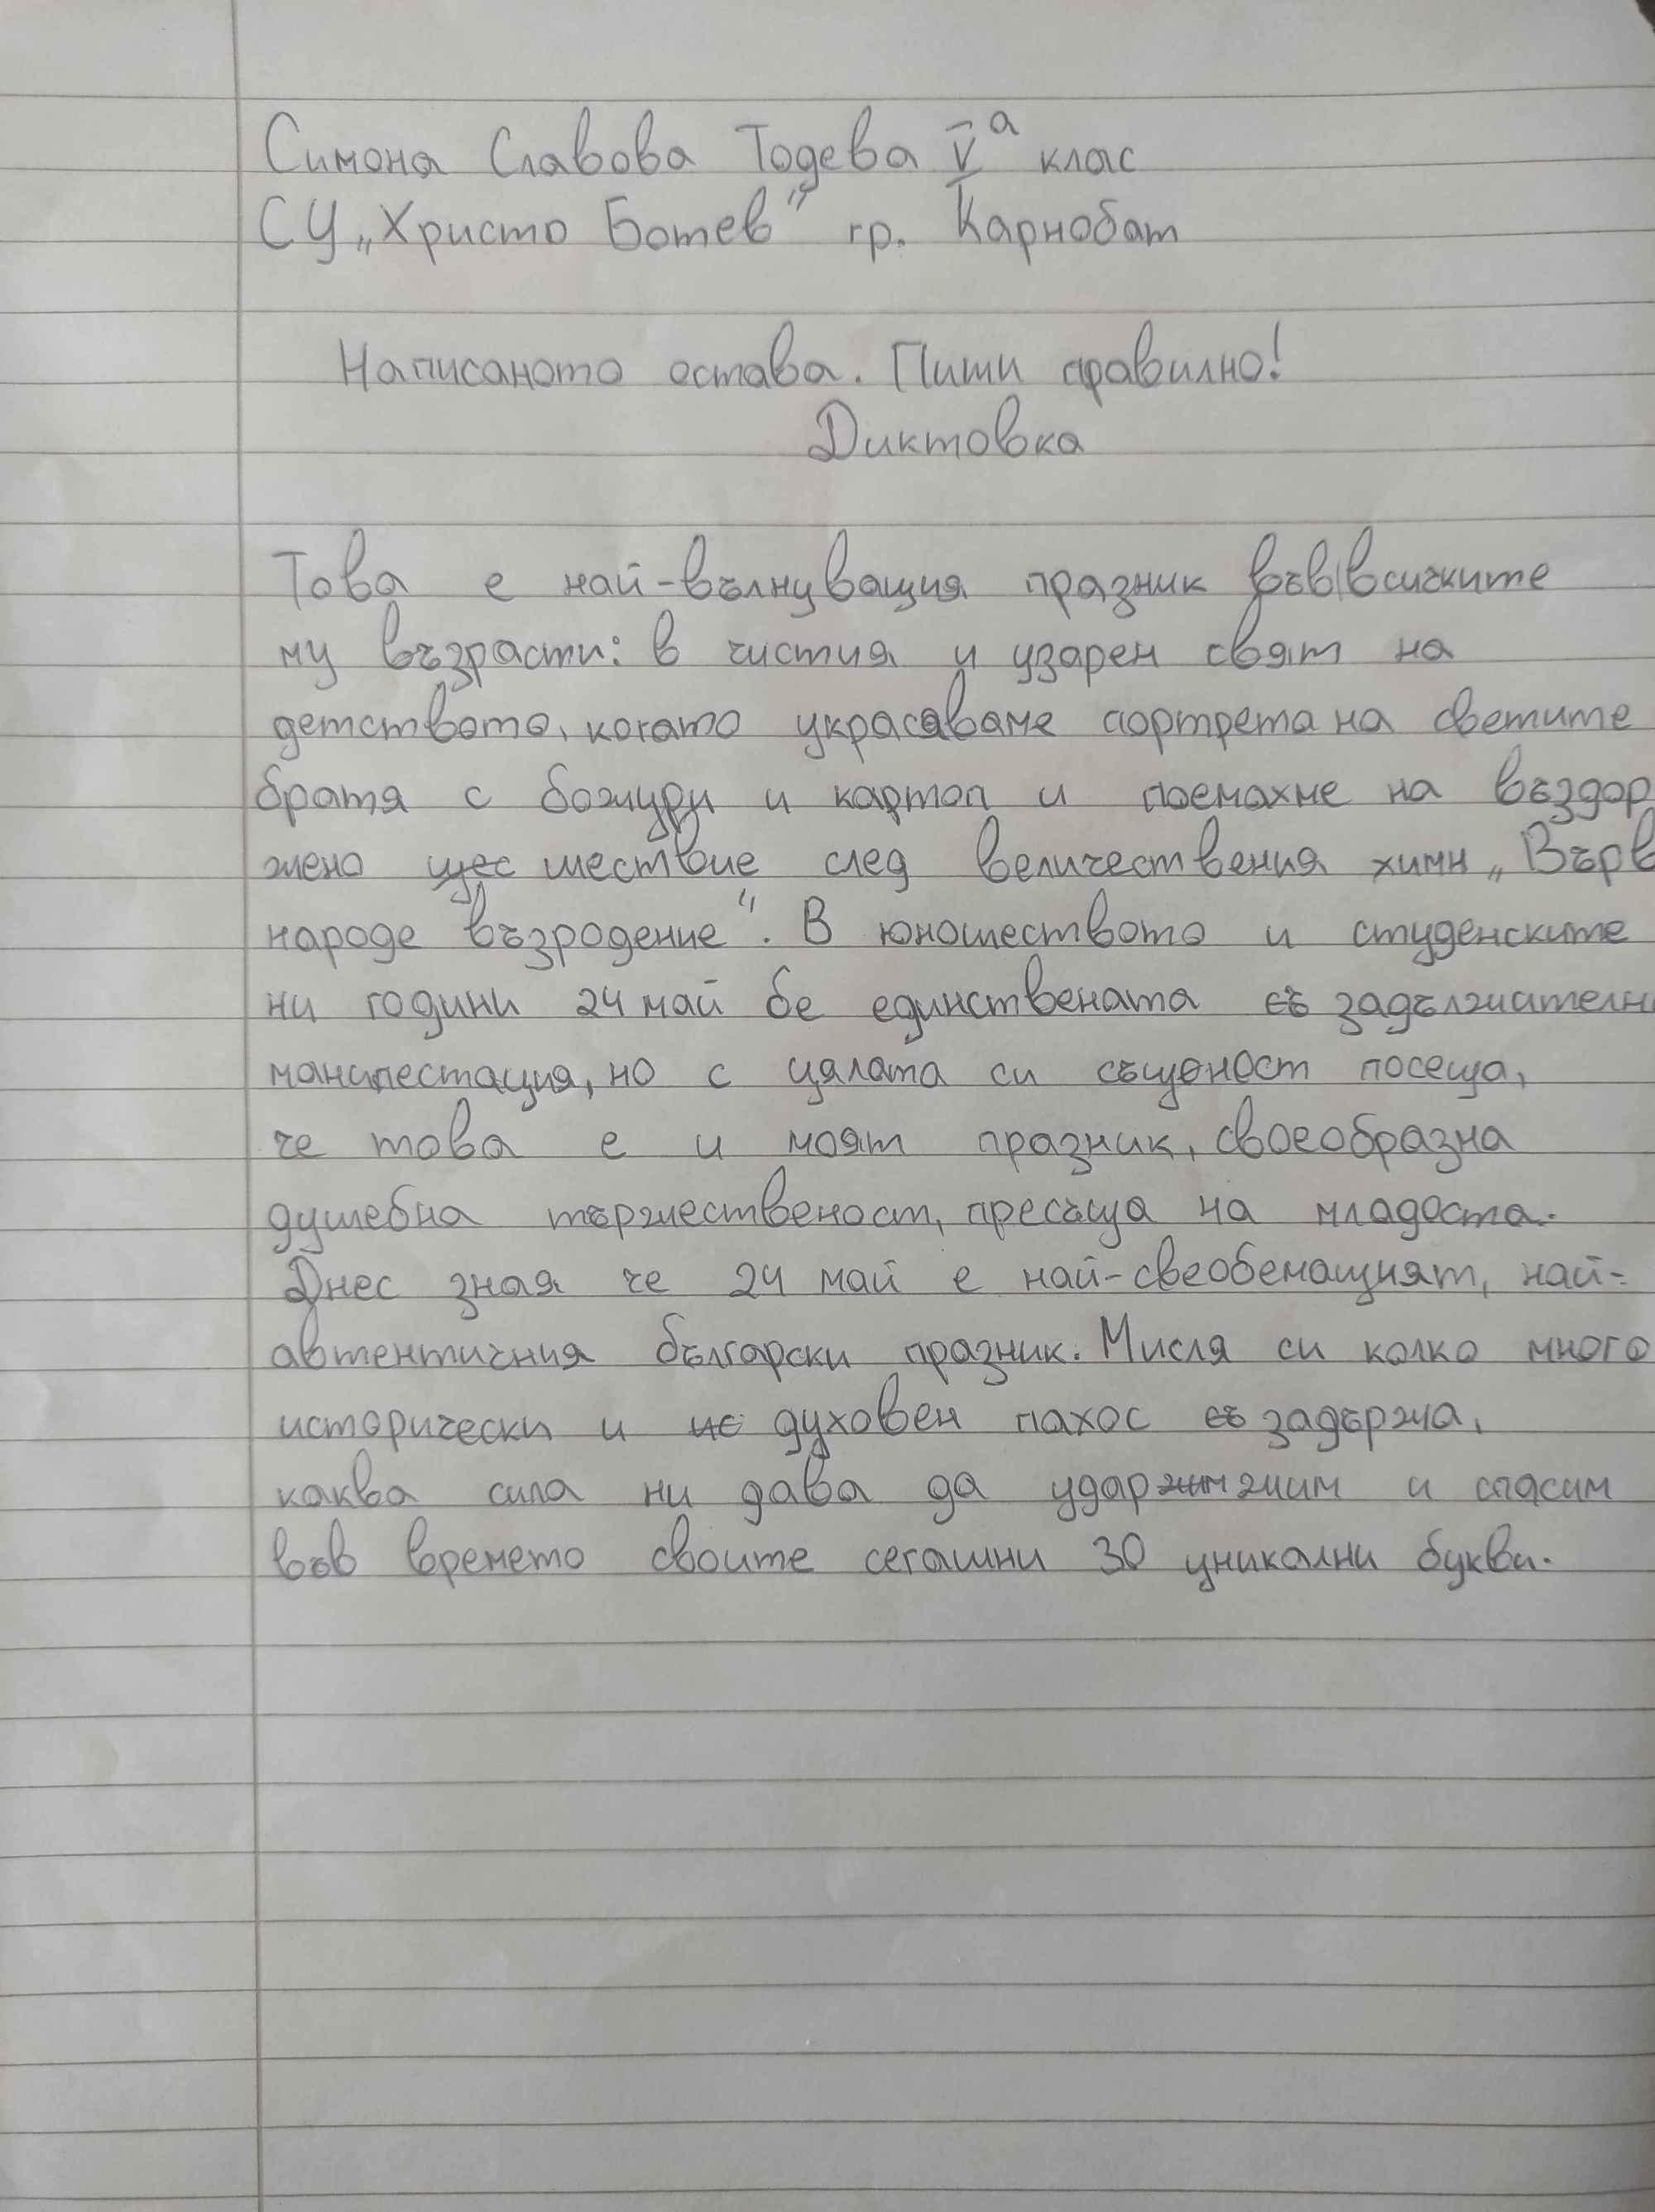 Симона Славова Тодева Vа клас
СУ „Христо Ботев" гр. Карнобат
Написаното остава. Пиши правилно!
Диктовка
Това е най-вълнуващия празник във всичките
му възрасти: в чистия и узарен свят на
детството, когато украсяваме портрета на светите
братя с божури и картоп и поемахме на въздор
жено щес шествие след величествения химн „Върв
народе възродение". В юношеството и студенските
ни години 24 май бе единствената съ задължителн
манипестация, но с цялата си същност посеща,
че това е и моят празник, своеобразна
душебна тържественост, пресъща на младоста.
Днес зная че 24 май е най-свеобемащият, най-
автентичния български празник. Мисля си колко много
исторически и ис духовен пахос съ задържа,
каква сила ни дава да ударжим жим и спасим
във времето своите сегашни 30 уникални букви.